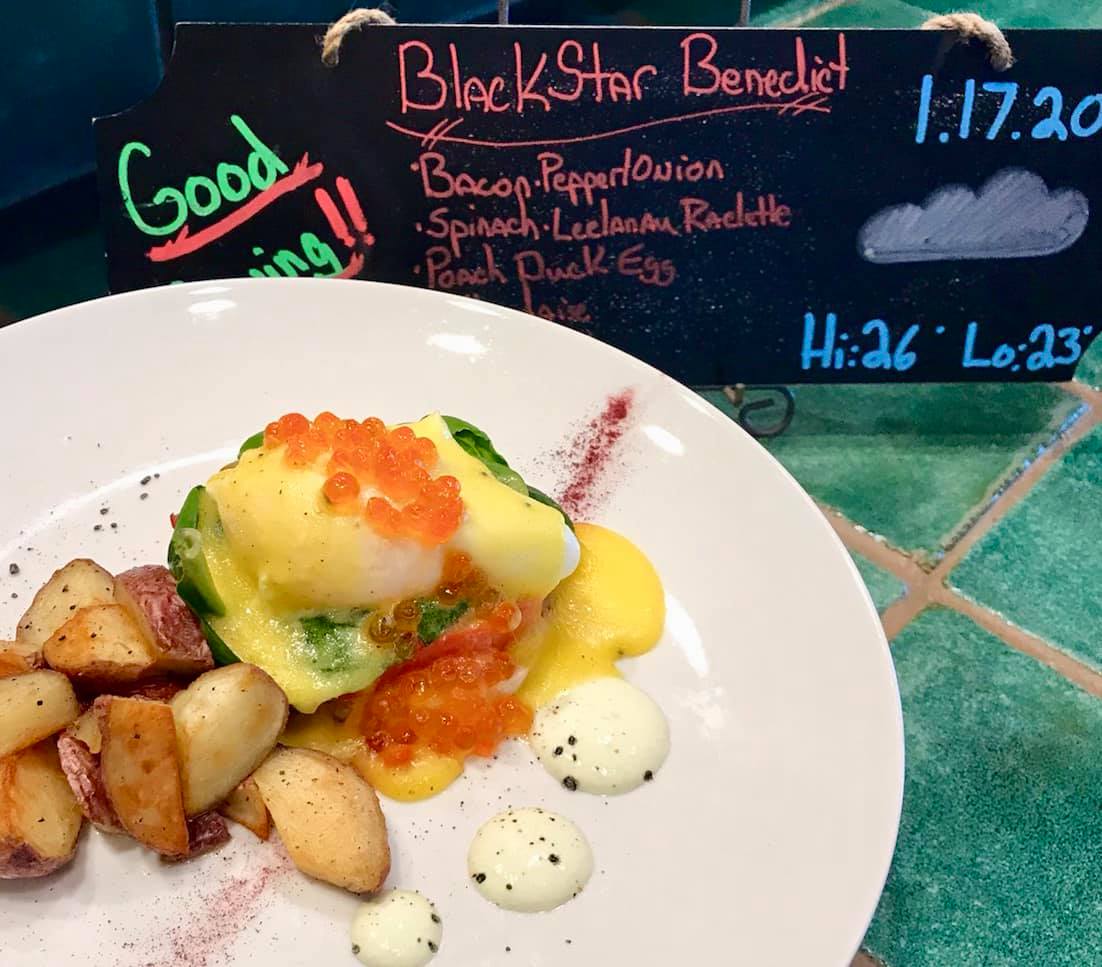 Good
BlackStar Benedict
· Bacon · Pepper/Onion
· Spinach · Leelanau Raclette
· Poach Duck Egg
1.17.20
Hi: 26° Lo: 23°